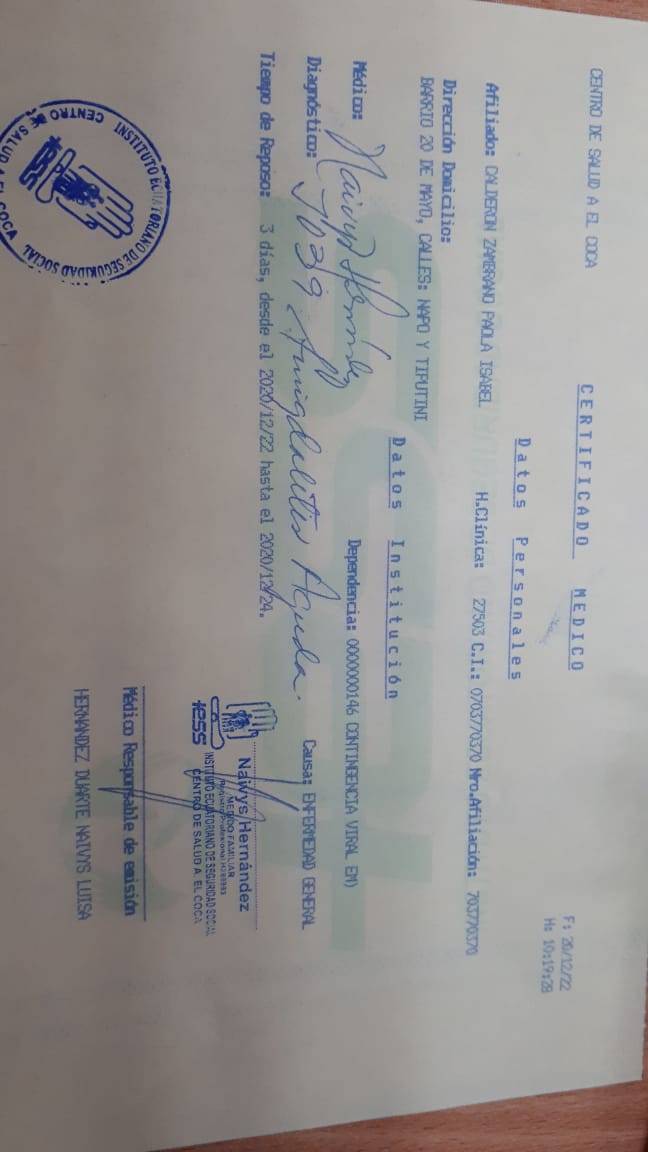 CENTRO DE SALUD A EL COCA
F: 20/12/22
H: 10:19:28
CERTIFICADO MEDICO
Datos Personales
Afiliado: CALDERON ZAMBRANO PAOLA ISABEL H.Clínica: 27503 C.I.: 0703770370 Nro.Afiliación: 703770370
Dirección Domicilio:
BARRIO 20 DE MAYO, CALLES: NAPO Y TIPUTINI
Datos Institución
Médico: Naivys Hernández Dependencia: 0000000146 CONTINGENCIA VIRAL EM)
Diagnóstico: J039 Amigdalitis Aguda. Causa: ENFERMEDAD GENERAL
Tiempo de Reposo: 3 días, desde el 2020/12/22 hasta el 2020/12/24.
INSTITUTO ECUATORIANO DE SEGURIDAD SOCIAL
CENTRO DE SALUD A EL COCA
IESS
Naivys Hernández
MEDICO FAMILIAR
INSTITUTO ECUATORIANO DE SEGURIDAD SOCIAL
CENTRO DE SALUD A. EL COCA
iess
Médico Responsable de emisión
HERNANDEZ DUARTE NAIVYS LUISA